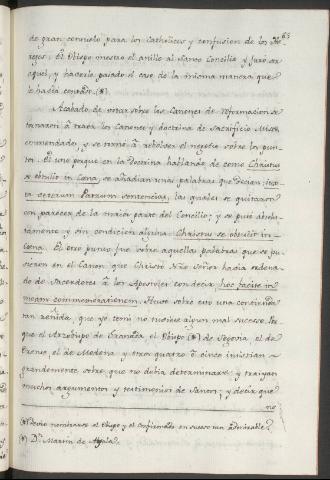 63
de gran consuelo para los Catholicos y confusion de los He-
reges. El Obispo mostro el anillo al Sancto Concilio y juro ser
aquel, y haverle pasado el caso de la misma manera que
lo havia contado (*).
Acabado de votar sobre los Canones de reformacion se
tornaron à traer los Canones y doctrina de Sacrificio Missæ
enmendados, y se tornò à rebolver el negocio sobre los pun-
tos. El uno porque en la Doctrina hablando de como Christus
se obtulit in Cœna, se añadian unas palabras que decian: juxta
ceterum Patrum sententias, las quales se quitaron
con parecer de la maior parte del Concilio; y se puso absolu-
tamente y sin condicion alguna: Christus se obtulit in
Cœna. El otro punto fue sobre aquellas palabras que se pu-
sieron en el Canon que Christo Nro Señor havia ordena-
do de Sacerdotes à los Apostoles con decir: hoc facite in
meam commemorationem. Huvo sobre esto una contienda
tan reñida, que yo temi no huviese algun mal sucesso. Por-
que el Arzobispo de Granada, el Obispo (*) de Segovia, el de
Orense, el de Modena y otros quatro ò cinco insistian
grandemente sobre que no debia determinarse; y traìan
muchos argumentos y testimonios de Santos; y decir que
no
(*) Devio nombrarse el Obispo y el confirmarlo en suceso tan admirable?
(*) Dn. Martin de Ayala.